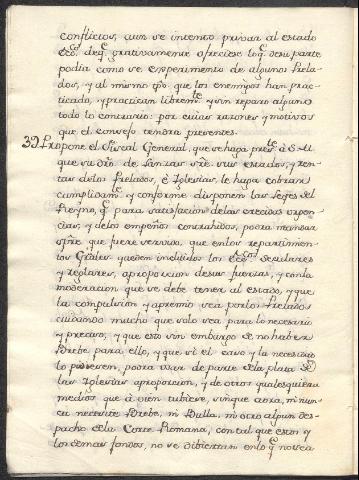 conflictos, aun se intento privar al estado
Ecco. de q. gratuitamente ofreciese lo q. de su parte
podia como se experimento de algunos Prela-
dos, y al mismo tpo. que los enemigos han prac-
ticado, y practican libremte. y sin reparo alguno
todo lo contrario: por cuias razones y motivos
que el consejo tendra presentes.
39 Propone el Fiscal General, que se haga preste. à S. M.
que su dro. de lanzas sre. sus estados, y ren-
tas de los Prelados, è Iglesias, le haga cobrar
cumplidamte. y conforme disponen las Leyes del
Reyno, q. para satisfacion de las crecidas urgen-
cias, y de los empeños contrahidos, podra mandar
sipre. que fuere servido, que en los repartimien-
tos Grâles queden incluidos los Eccos. seculares
y reglares, aproporcion de sus fuerzas, y con la
moderacion que se debe tener al estado, y que
la compulsion y apremio sea por los Prelados
cuidando mucho que solo sea para lo necesario
y preciso, y que esto sin embargo de no haber
Brebe para ello, y que si el caso y la necesidad
lo pidiesen, podra usar de parte de la plata de
las Iglesias aproporcion, y de otros qualesquiera
medios que à vien tubiere, sinque aora, ni nun-
ca necesite Brebe, ni Bulla, ni otro algun des-
pacho de la Corte Romana, contal que estos y
los demas fondos, no se dibiertan en lo q. no sea